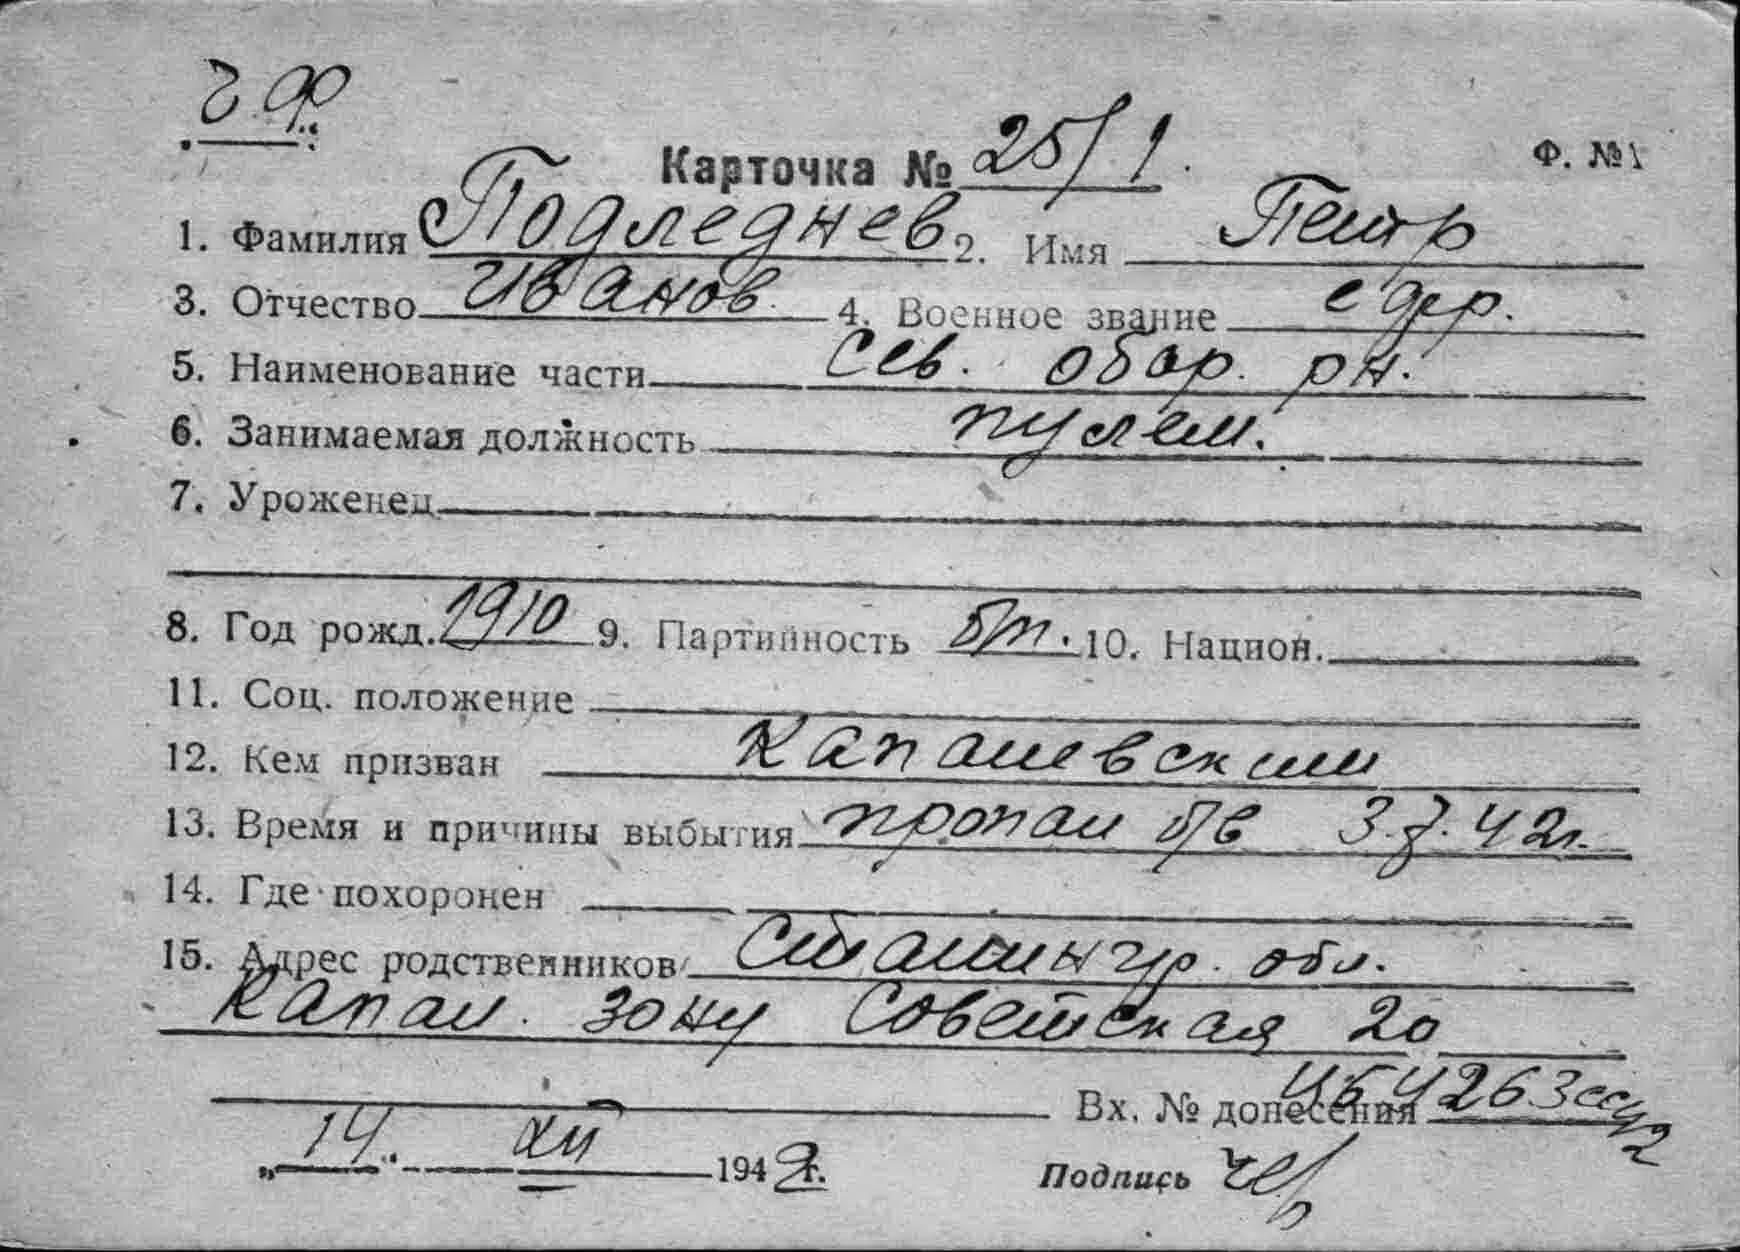 ч ф
Карточка № 25/1. Ф. №1
1. Фамилия Подледнев 2. Имя Петр
3. Отчество Иванов. 4. Военное звание
5. Наименование части Сев. обор. рн.
6. Занимаемая должность пулем.
7. Уроженец
8. Год рожд. 1910 9. Партийность б/п. 10. Национ.
11. Соц. положение
12. Кем призван
13. Время и причины выбытия пропал б/в 3.7.42г.
14. Где похоронен
15. Адрес родственников Сталингр. обл.
зону Советская 20
Вх. № донесения
„14“ XII 1942г. Подпись